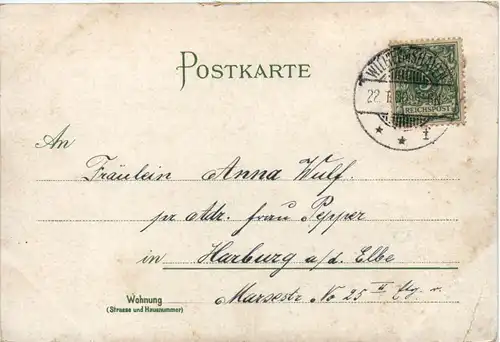 POSTKARTE
REICHSPOST
An
Fräulein Anna Wulf.
pr Adr. Frau Pepper
in Harburg a/d. Elbe
Wohnung
(Strasse und Hausnummer)
No 25 II